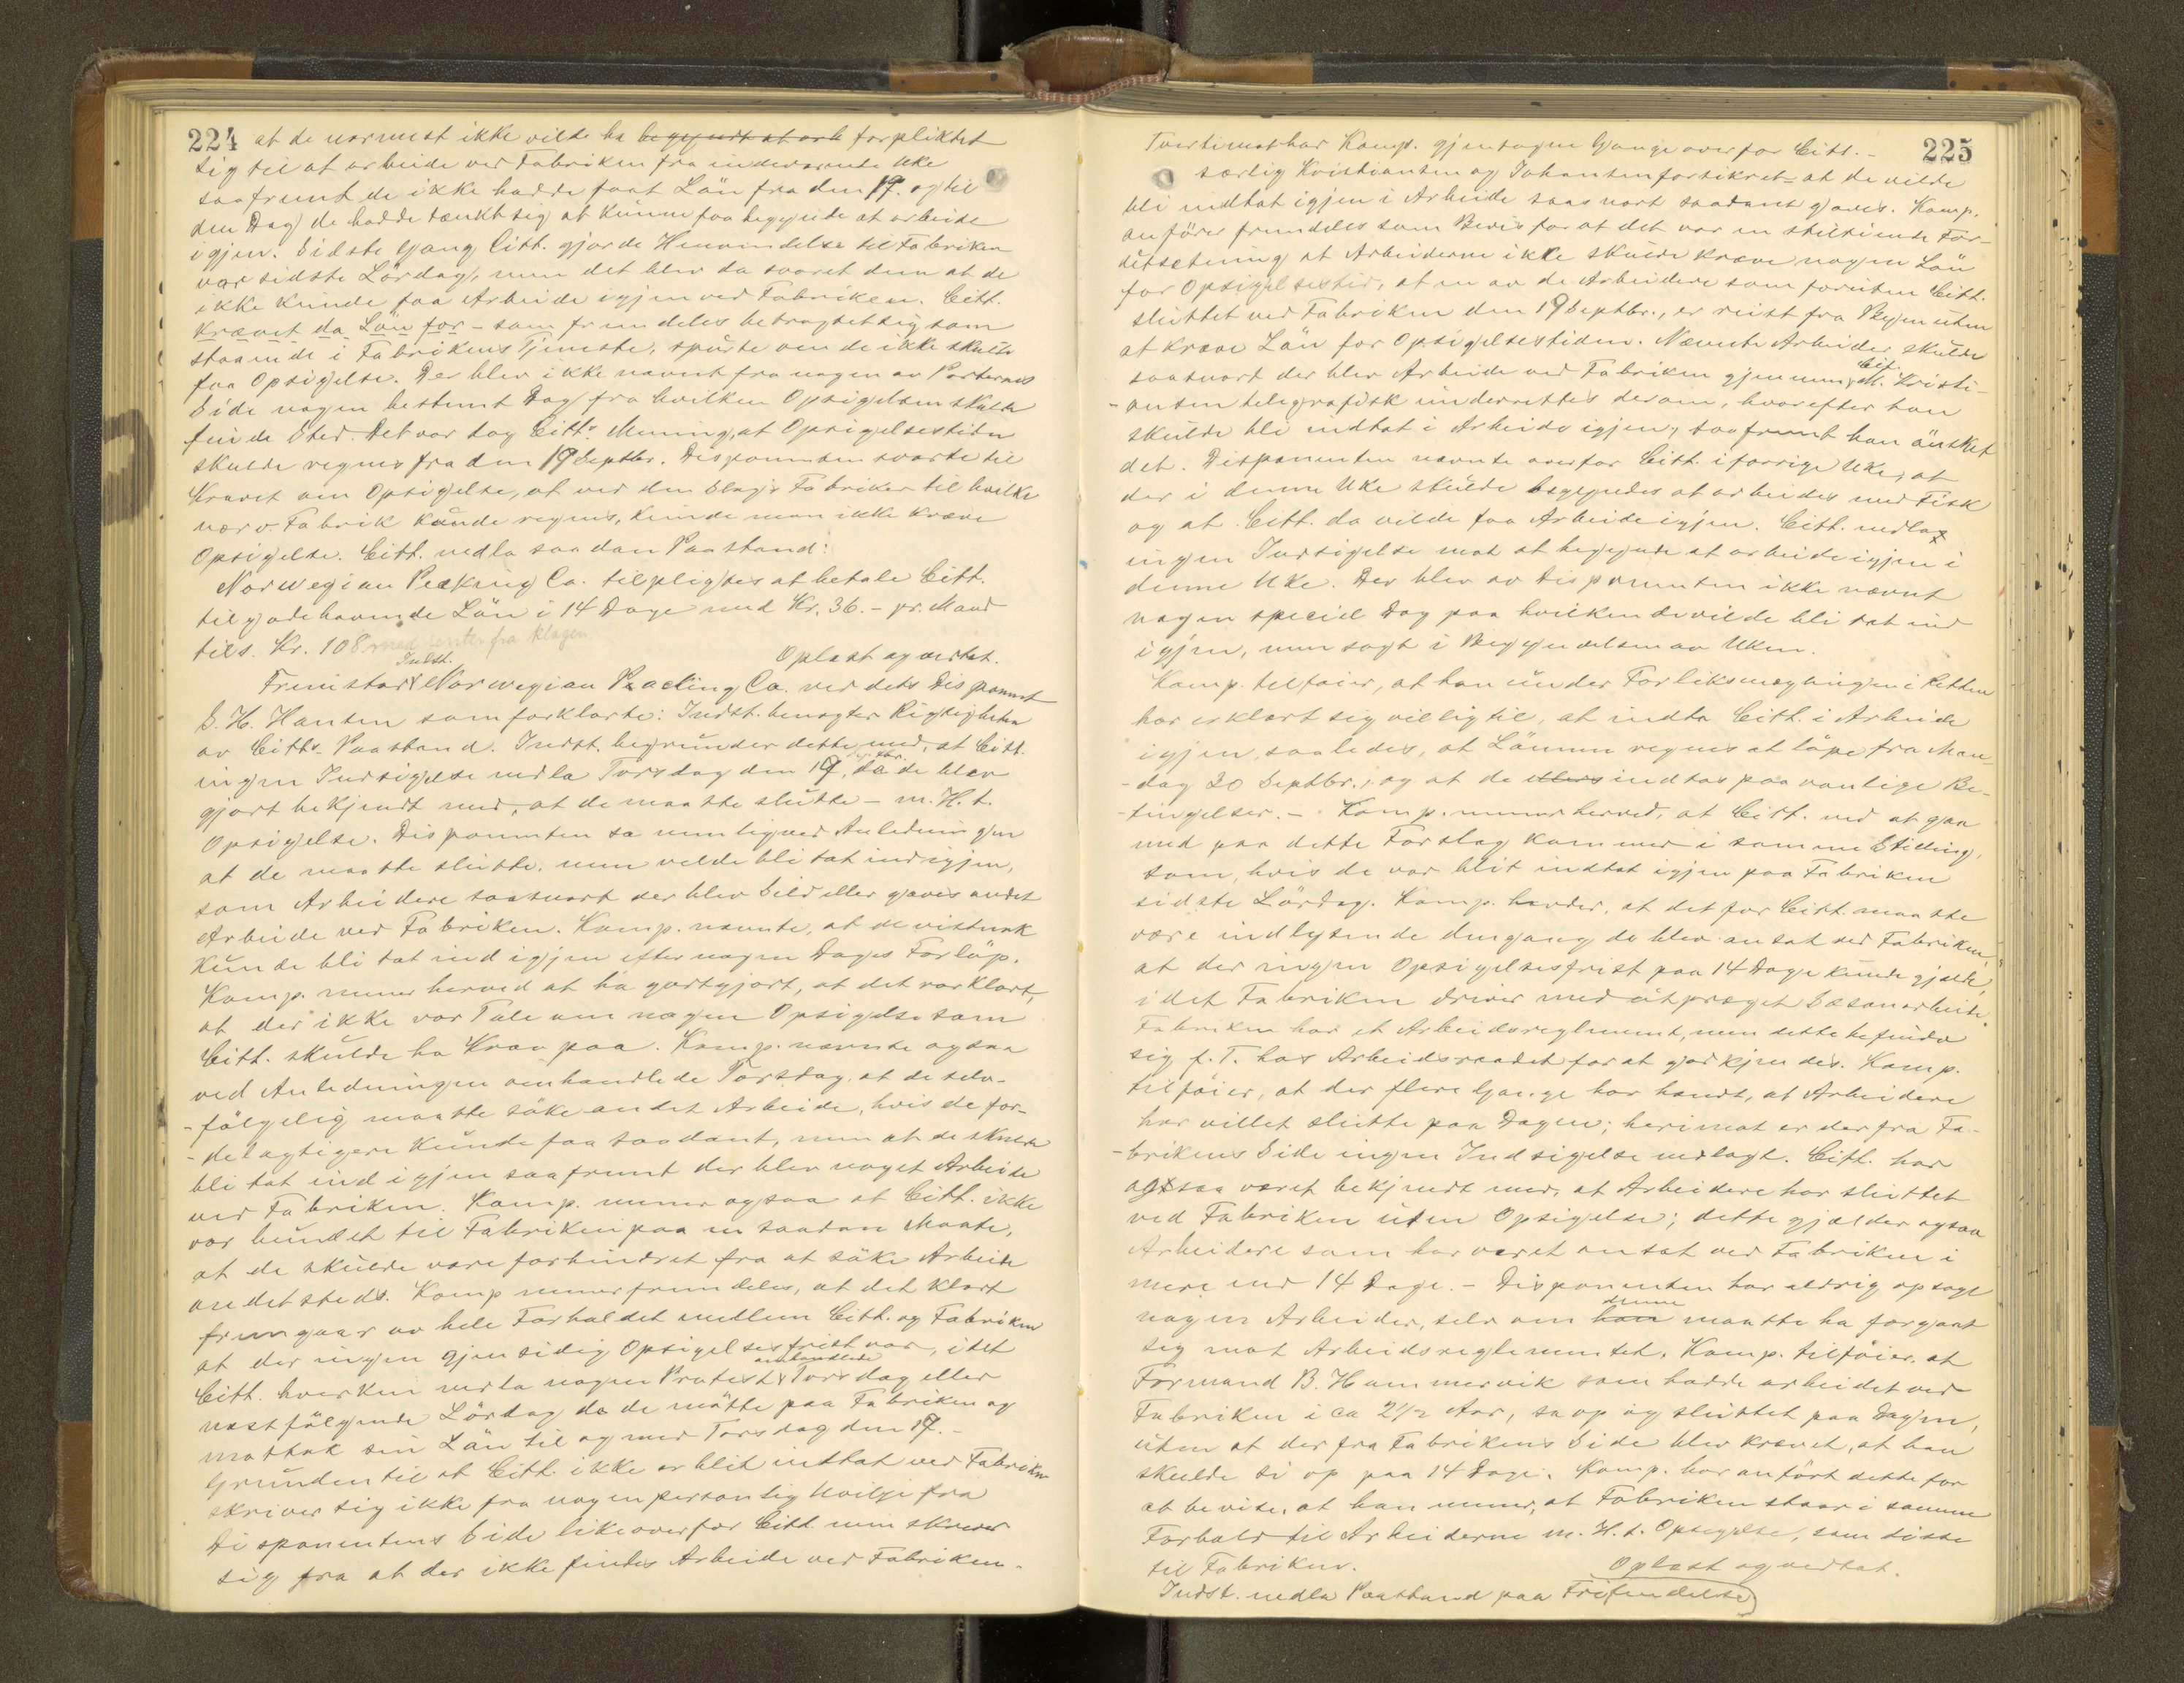 224 at de nærmest ikke vilde ha begyndt at arb forpliktet
sig til at arbeide ved Fabriken fra indeværende Uke
saafremt de ikke hadde faat Lön fra den 19. og til
den Dag de hadde tænkt sig at kunne faa begynde at arbeide
igjen. Sidste Gang Citt. gjorde Henvendelse til Fabriken
var sidste Lördag, men det blev da svaret dem at de
ikke kunde faa Arbeide igjen ved Fabriken. Citt.
krævet da Lön for - som fremdeles betragtet sig som
staaende i Fabrikens Tjeneste, spurte om de ikke skulde
faa Opsigelse. Der blev ikke nævnt fra nogen av Parternes
Side nogen bestemt Dag fra hvilken Opsigelsen skulde
finde Sted. Det var dog Citts Mening, at Opsigelsestiden
skulde regnes fra den 19 Septbr. Disponenten svarte til
Kravet om Opsigelse, at ved den Slags Fabriker til hvilke
nærv. Fabrik kunde regnes, kunde man ikke kræve
Opsigelse. Citt. nedla saadan Paastand:
Norwegian Packing Co. tilpligtes at betale Citt.
tilgodehavende Lön i 14 Dage med Kr. 36.- pr. Mand
tils. Kr. 108 med renter fra klagen.
Oplæst og vedtat.
Indst.
Fremstod Norwegian Packing Co. ved dets Disponent
S. H. Hansen som forklarte: Indst. benægter Rigtigheten
av Citts. Paastand. Indst. begrunder dette med, at Citt.
ingen Indsigelse nedla Torsdag den 19, da de blev
gjort bekjendt med, at de maatte slutte - m. H. t.
Opsigelse. Disponenten sa nemlig ved Anledningen
at de maatte slutte, men vilde bli tat ind igjen,
som Arbeidere saasnart der blev Sild eller gaves andet
Arbeide ved Fabriken. Komp. nævnte, at de vistnok
kunde bli tat ind igjen efter nogen Dages Forlöp.
Komp. mener herved at ha godtgjort, at det var klart,
at der ikke var Tale om nogen Opsigelse som
Citt. skulde ha Krav paa. Komp. nævnte ogsaa
ved Anledningen omhandlede Torsdag, at de selv-
-fölgelig maatte söke andet Arbeide, hvis de for-
-delagtigere kunde faa saadant, men at de skulde
bli tat ind igjen saafremt der blev noget Arbeide
ved Fabriken. Komp. mener ogsaa at Citt. ikke
var bundet til Fabriken paa en saadan Maate,
at de skulde være forhindret fra at söke Arbeide
andetsteds. Komp mener fremdeles, at det klart
fremgaar av hele Forholdet mellem Citt. og Fabriken
at der ingen gjensidig Opsigelsesfrist var, idet
omhandlede
Citt. hverken nedla nogen Protest Torsdag eller
næstfölgende Lördag da de mötte paa Fabriken og
mottok sin Lön til og med Torsdag den 19. -
Grunden til at Citt. ikke er blit indtat ved Fabriken
skriver sig ikke fra nogen personlig Uvilje fra
Disponentens Side likeoverfor Citt. men skriver
sig fra at der ikke findes Arbeide ved Fabriken.
225
Tvertimot har Komp. gjentagne Gange overfor Citt. -
særlig Kristiansen og Johansen forsikret - at de vilde
bli indtat igjen i Arbeide saasnart saadant gaves. Komp.
anförer fremdeles som Bevis for at det var en stiltiende For-
utsetning at Arbeiderne ikke skulde kræve nogen Lön
for Opsigelsestid, at en av de Arbeidere som foruten Citt.
sluttet ved Fabriken den 19 Septbr., er reist fra Byen uten
at kræve Lön for Opsigelsestiden. Nævnte Arbeider skulde
Cit.
saasnart der blev Arbeide ved Fabriken gjennem M. Kristi-
-ansen telegrafisk underrettes derom, hvorefter han
skulde bli indtat i Arbeide igjen, saafremt han önsket
det. Disponenten nævnte overfor Citt. i forrige Uke, at
der i denne Uke skulde begyndes at arbeides med Fisk
og at Citt. da vilde faa Arbeide igjen. Citt. nedla
ingen Indsigelse mot at begynde at arbeide igjen i
denne Uke. Der blev av Disponenten ikke nævnt
nogen speciel Dag paa hvilken de vilde bli tat ind
igjen, men sagt i Begyndelsen av Uken.
Komp. tilföier, at han under Forliksmeglingen i Retten
har erklært sig villig til, at indta Citt. i Arbeide
igjen, saaledes, at Lönnen regnes at löpe fra Man-
-dag 30 Septbr., og at de ellers indtas paa vanlige Be-
-tingelser. - Komp. mener herved, at Citt. ved at gaa
med paa dette Forslag kommer i samme Stilling,
som, hvis de var blit indtat igjen paa Fabriken
sidste Lördag. Komp. hævder, at det for Citt. maatte
være indlysende dengang de blev ansat ved Fabriken,
at der ingen Opsigelsesfrist paa 14 Dage kunde gjælde,
idet Fabriken driver med utpræget Sæsonarbeide.
Fabriken har et Arbeidsreglement, men dette befinder
sig f. T. hos Arbeidsraadet for at godkjendes. Komp.
tilföier, at der flere Gange har hændt, at Arbeidere
har villet slutte paa Dagen; herimot er der fra Fa-
-brikens Side ingen Indsigelse nedlagt. Citt. har
ogsaa været bekjendt med, at Arbeidere har sluttet
ved Fabriken uten Opsigelse; dette gjælder ogsaa
Arbeidere som har været ansat ved Fabriken i
mere end 14 Dage. - Disponenten har aldrig opsagt
denne
nogen Arbeider, selv om han maatte ha forgaat
sig mot Arbeidsreglementet. Komp. tilföier, at
Formand B. Hammervik som hadde arbeidet ved
Fabriken i ca 2 1/2 Aar, sa op og sluttet paa Dagen,
uten at der fra Fabrikens Side blev krævet, at han
skulde si op paa 14 Dage. Komp. har anfört dette for
at bevise, at han mener, at Fabriken staar i samme
Forhold til Arbeiderne m. H. t. Opsigelse, som disse
til Fabriken. Oplæst og vedtat.
Indst. nedla Paastand paa Frifindelse